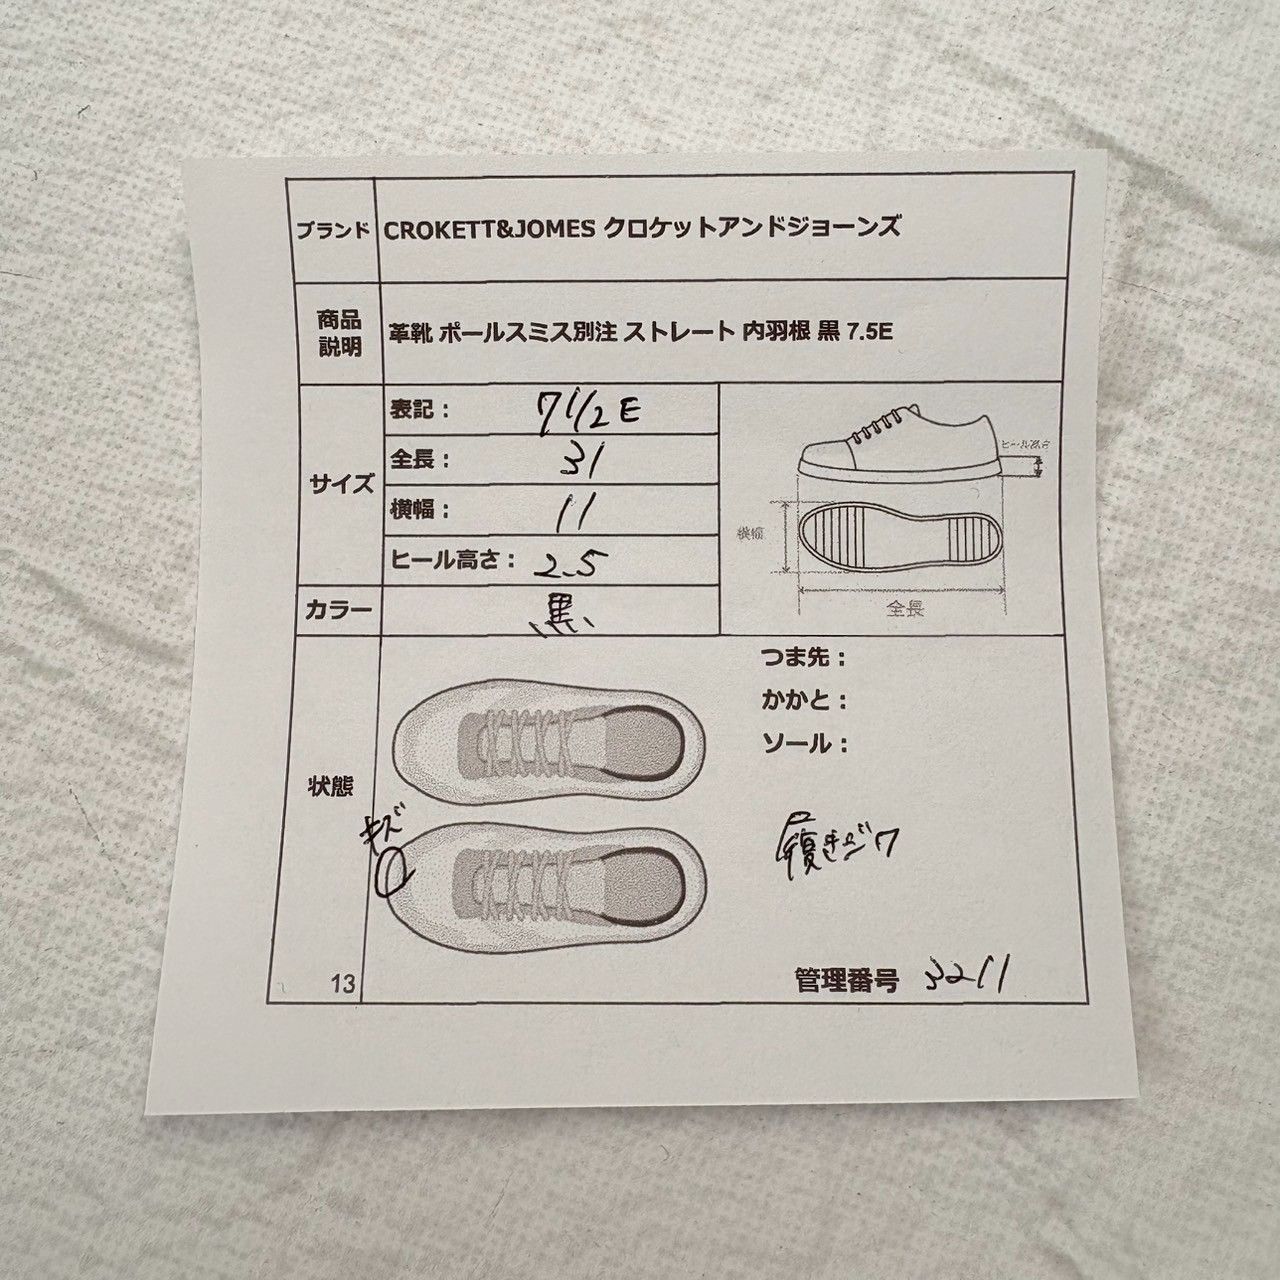 ブランド CROKETT&JOMES クロケットアンドジョーンズ
商品
説明
革靴 ポールスミス別注 ストレート 内羽根 黒 7.5E
サイズ
表記： 7 1/2 E
全長： 31
横幅： 11
ヒール高さ： 2.5
ヒール高さ
横幅
全長
カラー 黒
状態
つま先：
かかと：
ソール：
キズ
履きジワ
13
管理番号 3211